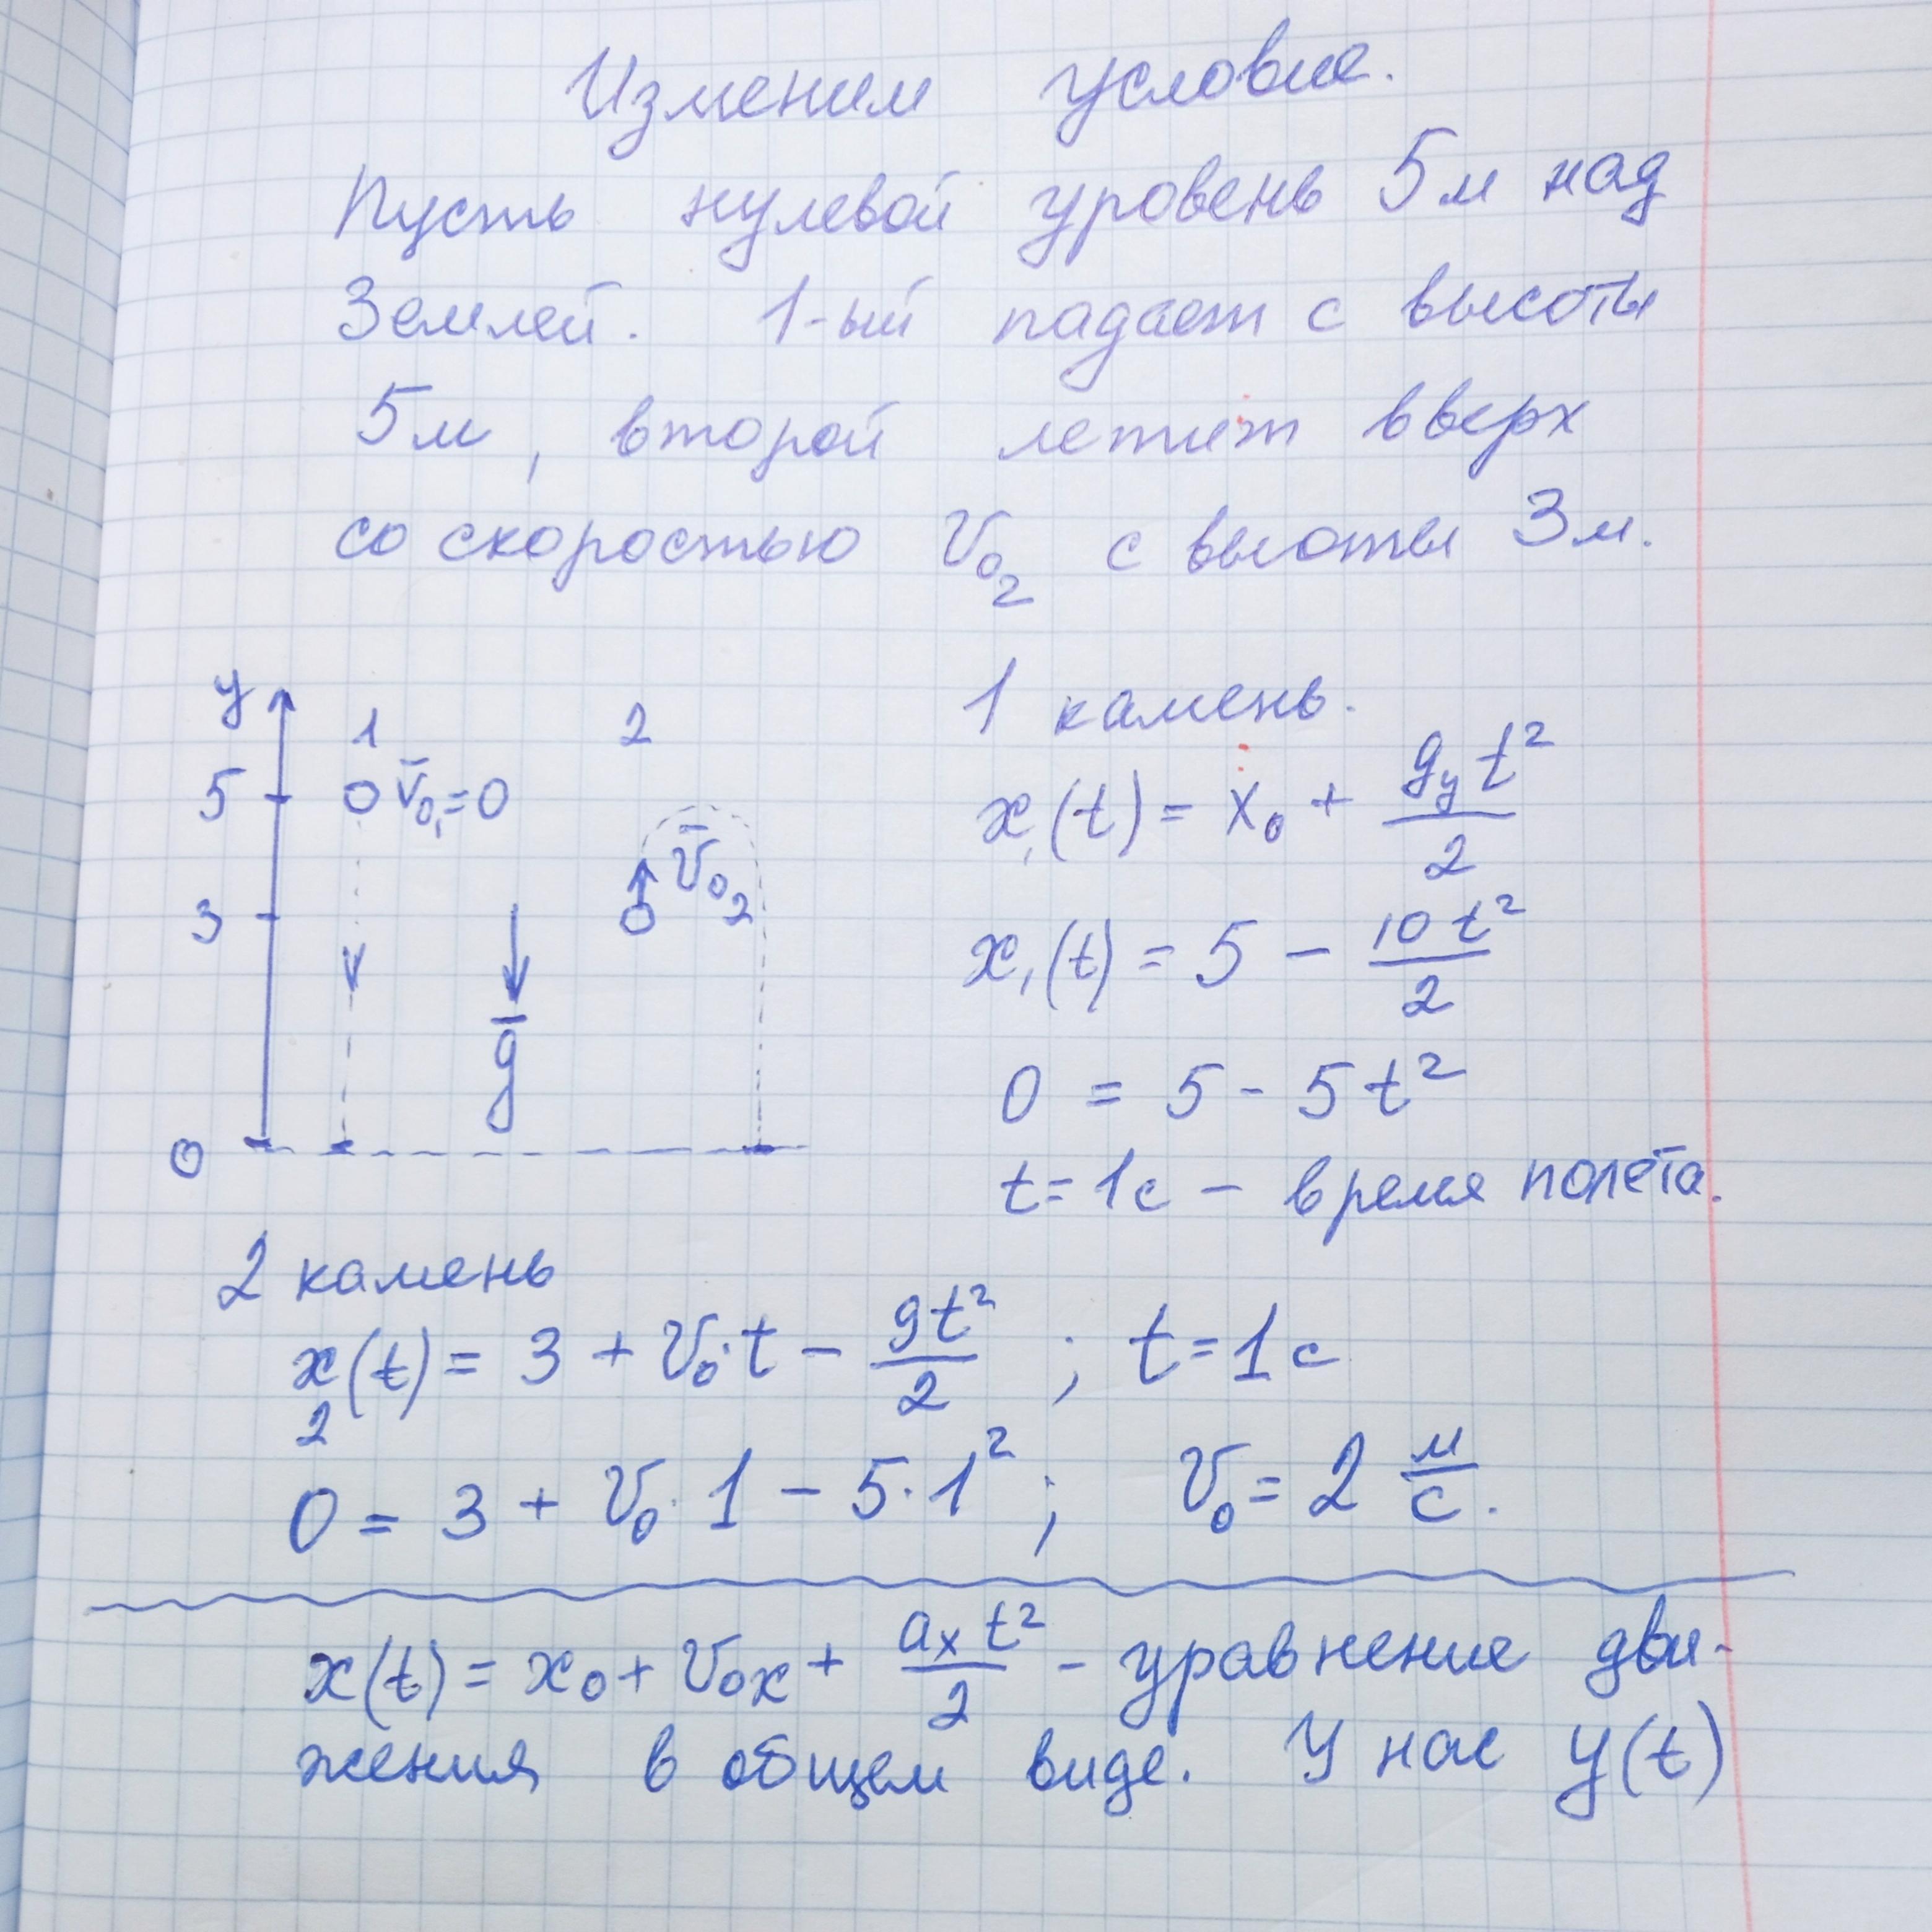 Изменим условие.
Пусть нулевой уровень 5м над
Землей. 1-ый падает с высоты
5м, второй летит вверх
со скоростью V₀₂ с высоты 3м.
y
1
2
5
V̄₀₁=0
V̄₀₂
3
ḡ
0
1 камень.
x₁(t) = x₀ + gᵧt²/2
x₁(t) = 5 - 10t²/2
0 = 5 - 5t²
t=1c - время полёта.
2 камень
x₂(t) = 3 + V₀·t - gt²/2 ; t=1c
0 = 3 + V₀·1 - 5·1² ; V₀ = 2 м/с.
x(t) = x₀ + V₀x + aₓt²/2 - уравнение дви-
жения в общем виде. У нас y(t)